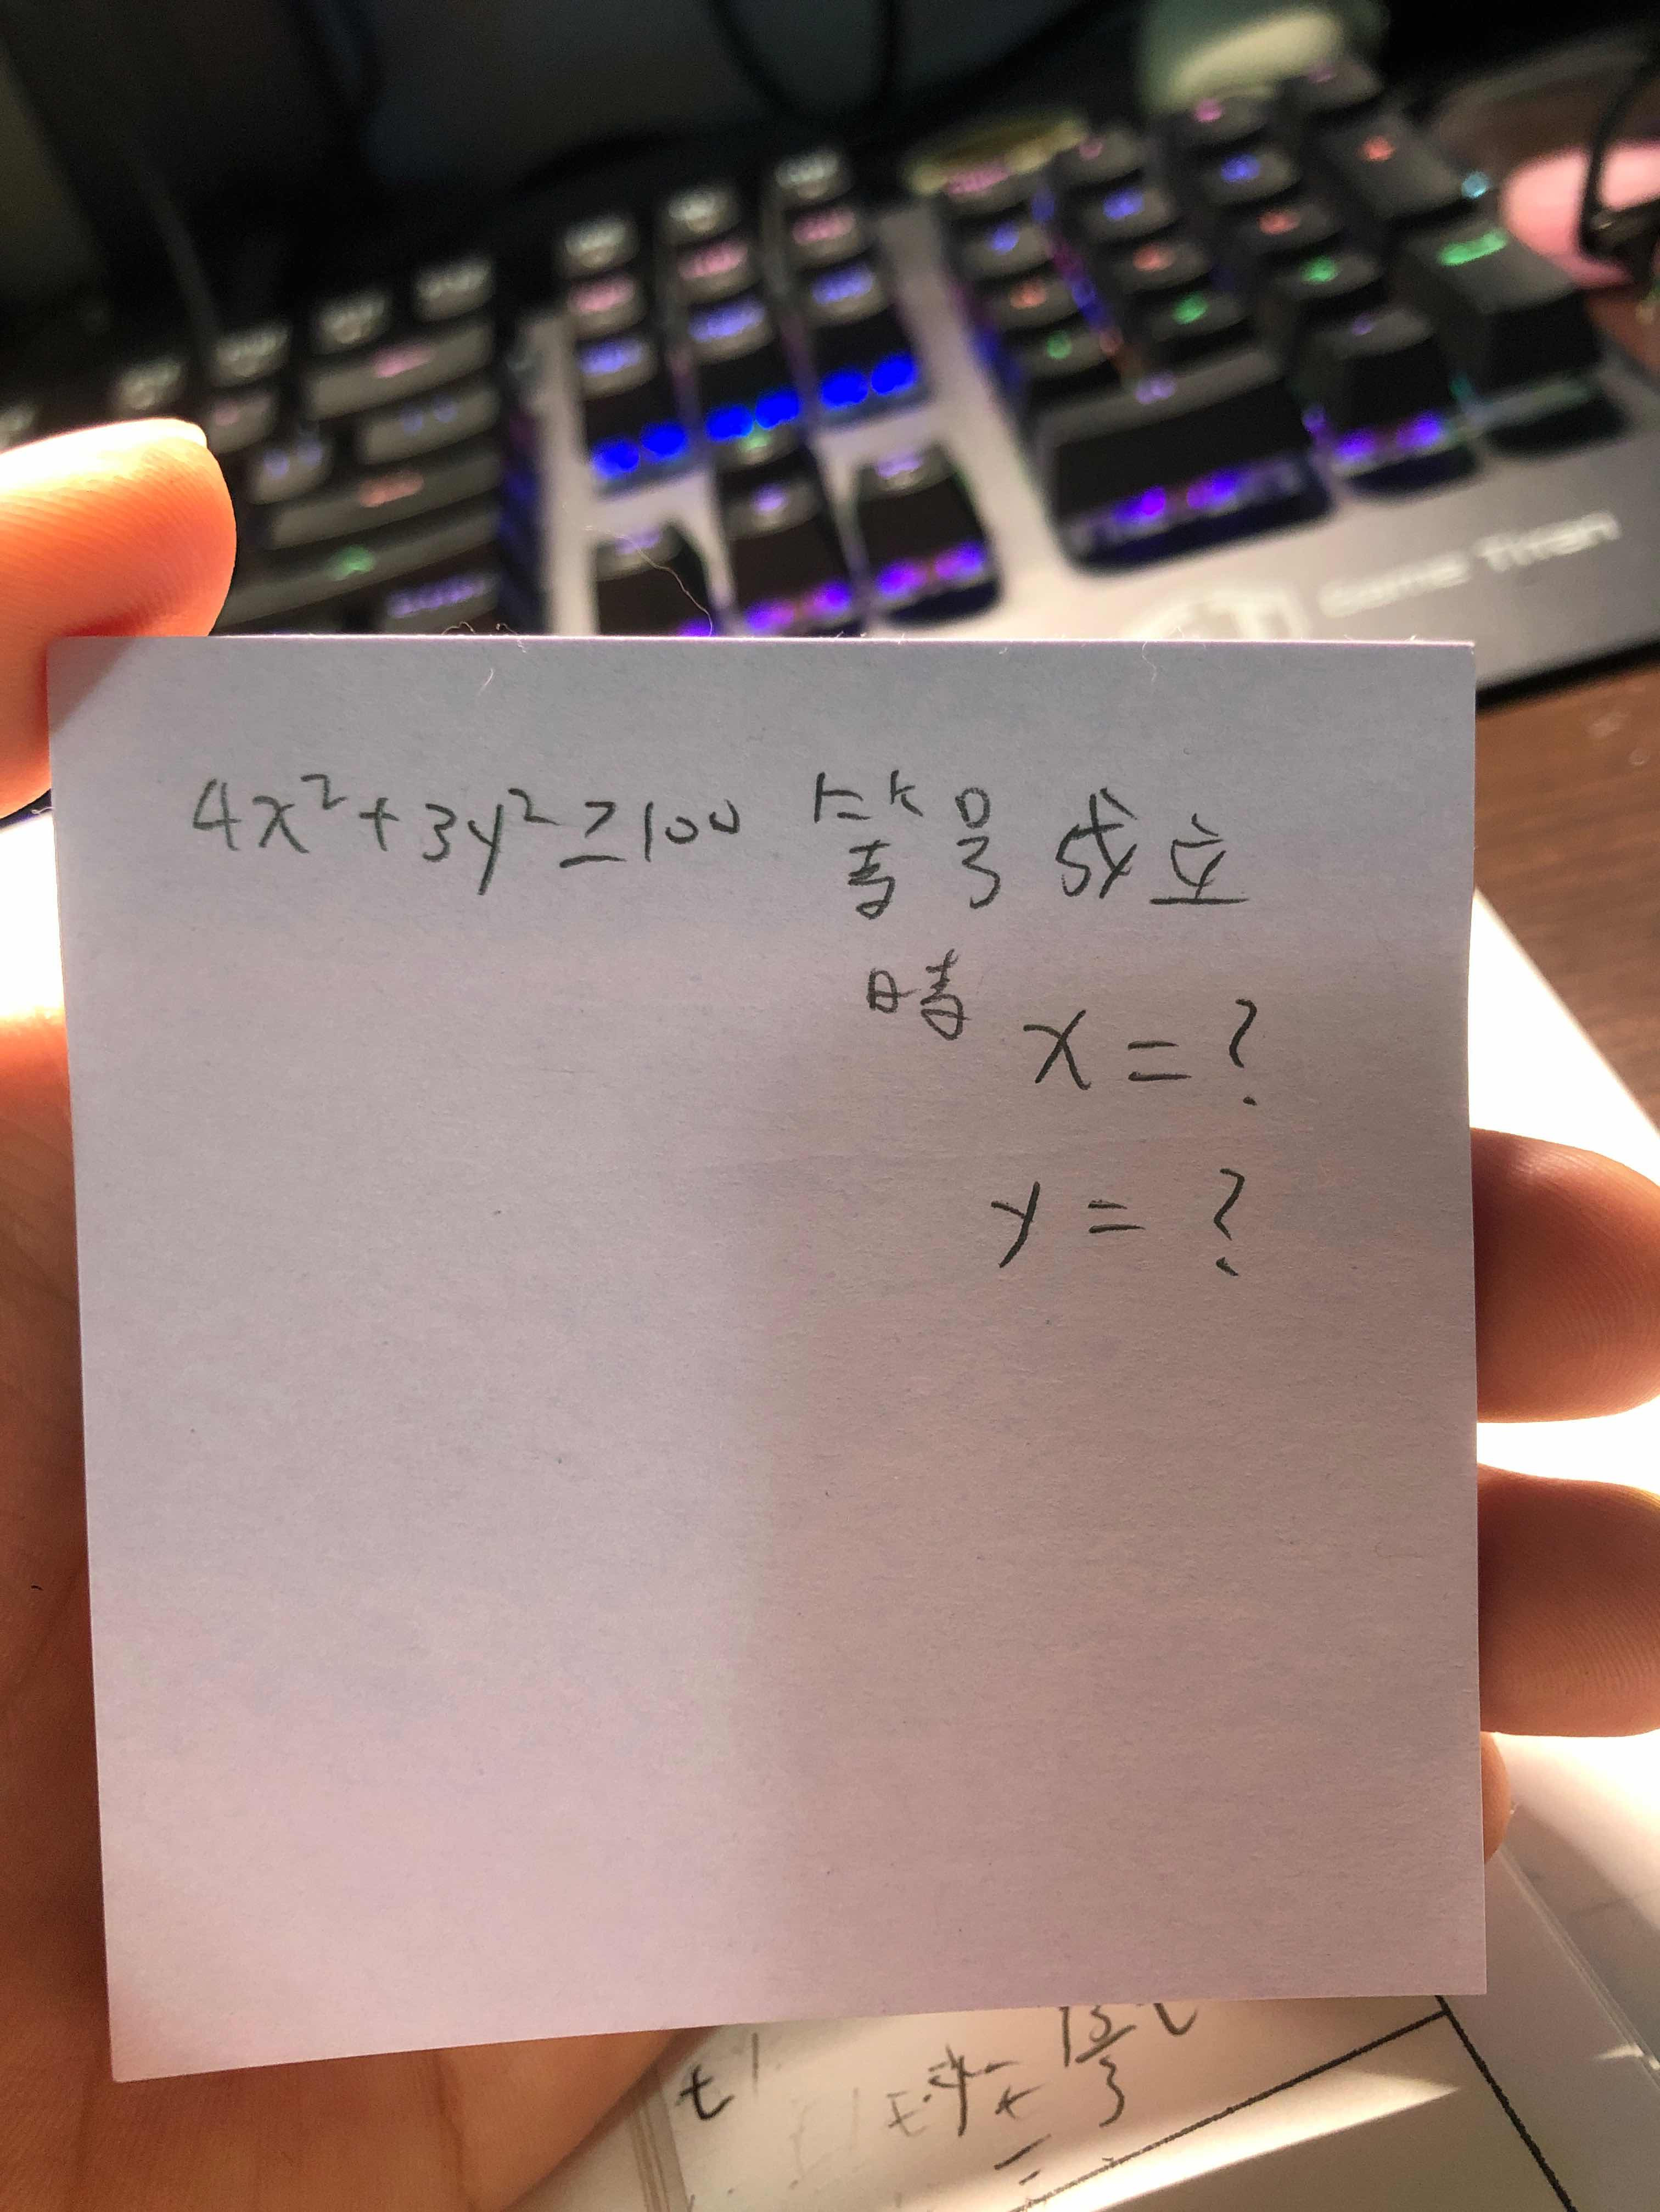 4x²+3y²≥100 等号成立
時 x=?
y=?
Game Titan